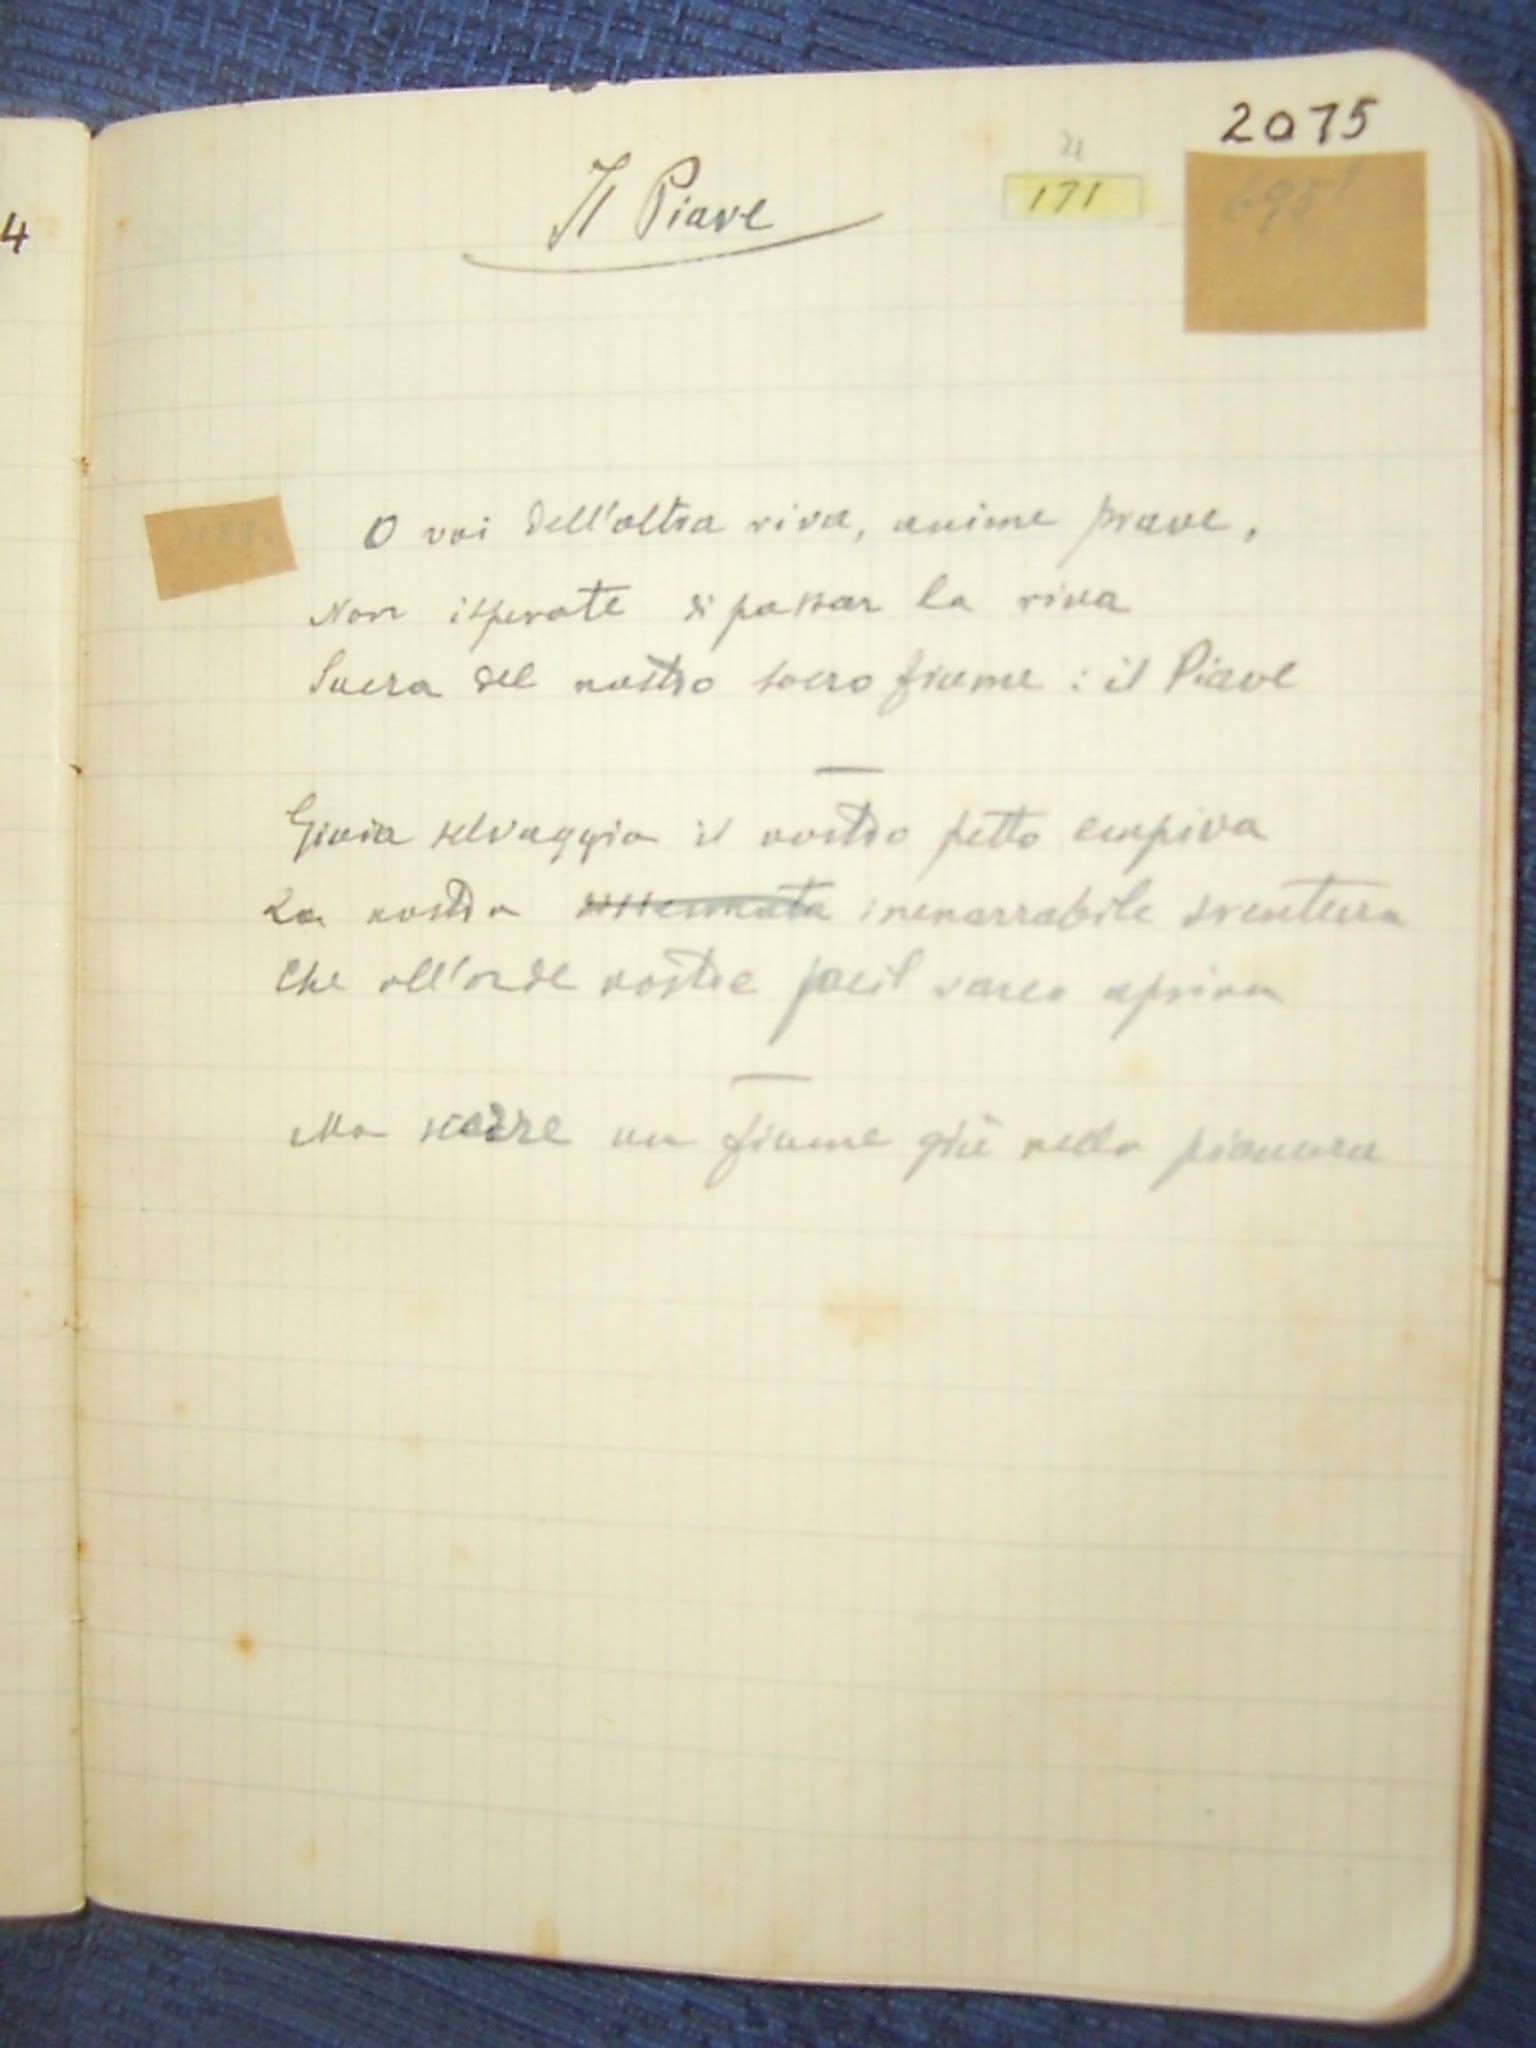 4
2075
21
171
695'
Il Piave
O voi dell'altra riva, anime prave,
Non isperate di passar la riva
Sacra del nostro sacro fiume: il Piave
Gioia selvaggia il vostro petto empiva
La nostra inenarrabile sventura
Che all'orde vostre facil varco apriva
Ma scorre un fiume giù nella pianura